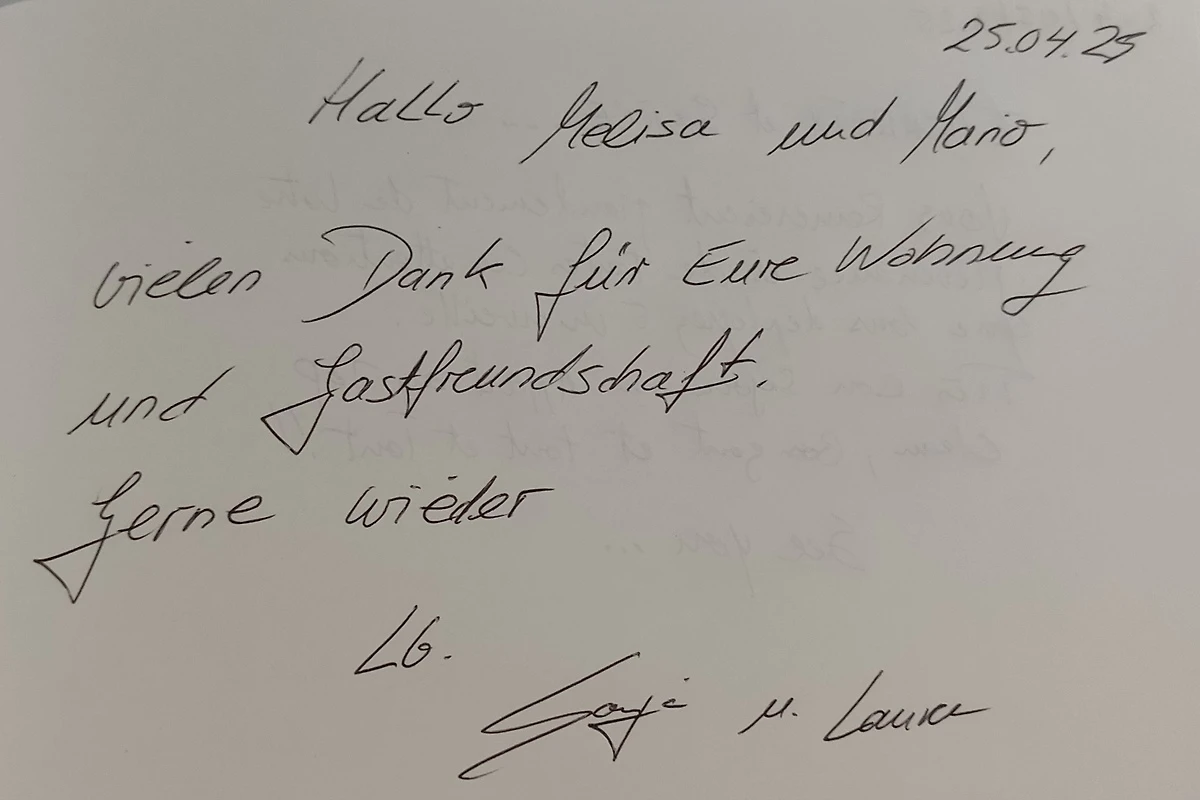 25.04.25
Hallo Melisa und Mario,
vielen Dank für Eure Wohnung
und Gastfreundschaft.
Gerne wieder
LG.
Sonja u.